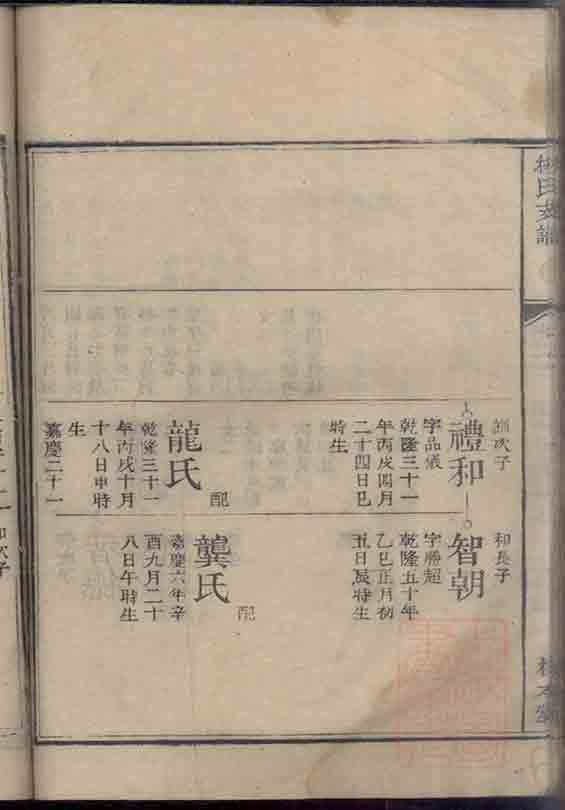 氏支譜
次子
禮和
字品儀
乾隆三十一
年丙戌四月
二十四日巳
時生
配
龍氏
乾隆三十一
年丙戌十月
十八日申時
生
嘉慶二十一
和長子
智朝
字勝超
乾隆五十年
乙巳正月初
五日辰時生
配
龔氏
嘉慶六年辛
酉九月二十
八日午時生
和次子